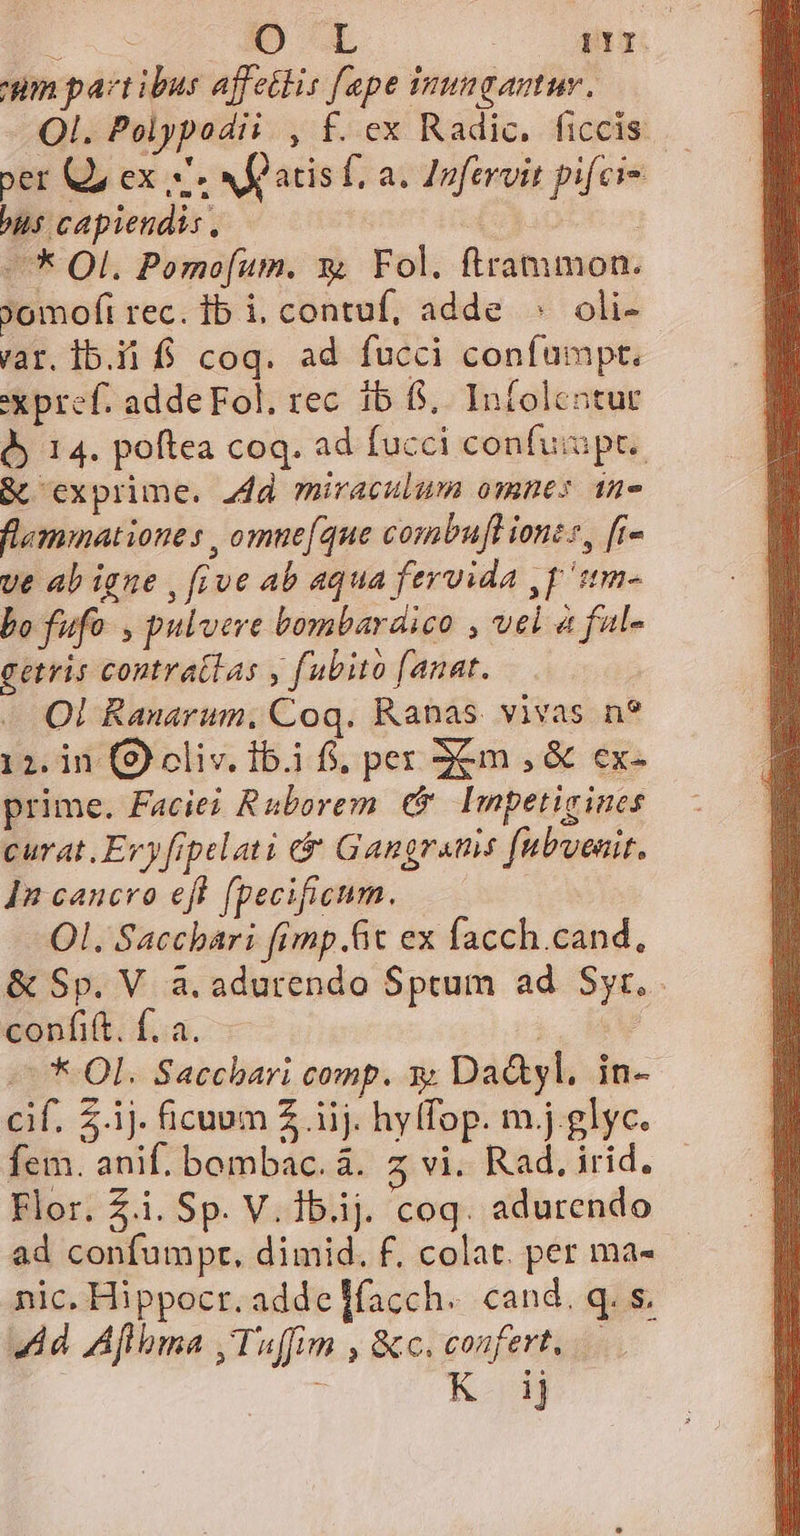 O L 111
cùm partibus affectis sæpe inungantur.
Ol. Polypodii , f. ex Radic. siccis
per ex atis s. a. Inservit pisci-
bus capiendis.
* Ol. Pomosum. ℞ Fol. strammon.
pomosi rec. ℔ i. contus, adde oli-
var. ℔.ii ß coq. ad succi consumpt.
expres. adde Fol. rec ℔ ß. Insolentur
14. postea coq. ad succi consumpt.
& exprime. Ad miraculum omnes in-
flammationes , omnesque combustiones, si-
ve ab igne , sive ab aqua fervida , plum-
bo fuso , pulvere bombardico , vel à ful-
getris contractas , subitò sanat.
Ol Ranarum. Coq. Ranas vivas nº
12. in oliv. ℔.i ß. per m , & ex-
prime. Faciei Ruborem & Impetigines
curat. Erysipelati & Gangrænis subvenit.
In cancro est specificum.
Ol. Sacchari simp. fit ex sacch. cand.
& Sp. V ā. adurendo Sptum ad Syr.
consist. s. a.
* Ol. Sacchari comp. ℞ Dactyl. in-
cis. ℥.ij. ficuum ℥.iij. hyssop. m.j. glyc.
sem. anis. bombac. ā. ʒ vi. Rad. irid.
Flor. ℥.i. Sp. V. ℔.ij. coq. adurendo
ad consumpt. dimid. f. colat. per ma-
nic. Hippocr. adde sacch. cand. q. s.
Ad Asthma , Tussim , &c. confert.
K ij